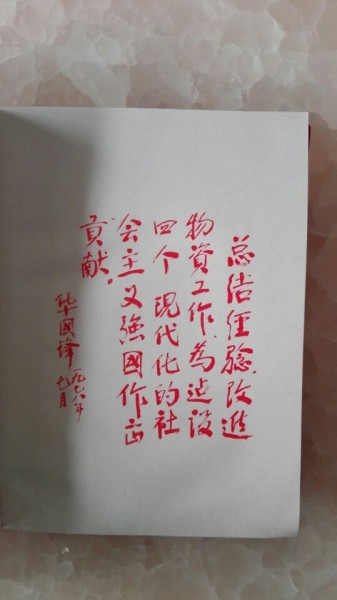 总结经验,改進
物資工作,为建设
四个现代化的社
会主义強國作出
貢献。
华國锋 一九七八年
七月